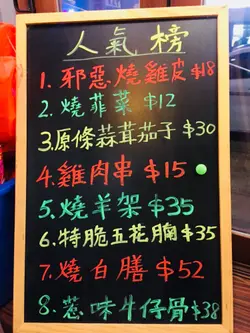 人氣榜
1.邪惡燒雞皮 $18
2.燒韮菜 $12
3.原條蒜茸茄子 $30
4.雞肉串 $15
5.燒羊架 $35
6.特脆五花腩 $35
7.燒白膳 $52
8.蔥味牛仔骨 $38